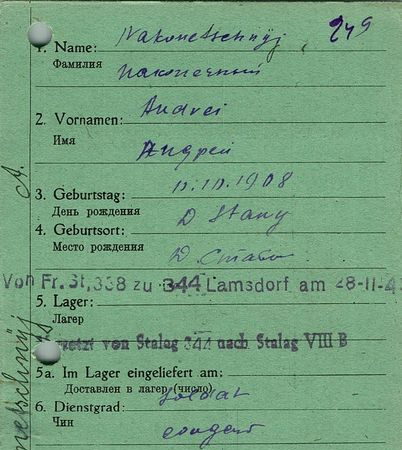 249
1. Name: Nakonetschnyj
Фамилия Наконечный
2. Vornamen: Andrei
Имя Андрей
3. Geburtstag: 11.10.1908
День рождения
4. Geburtsort: D
Место рождения Д.
Von Fr. St. 338 zu 344 Lamsdorf am 28-11-4
5. Lager:
Лагер
setzt von Stalag 344 nach Stalag VIII B
5a. Im Lager eingeliefert am:
Доставлен в лагер (число)
6. Dienstgrad: soldat
Чин солдат
A.
netschnyj